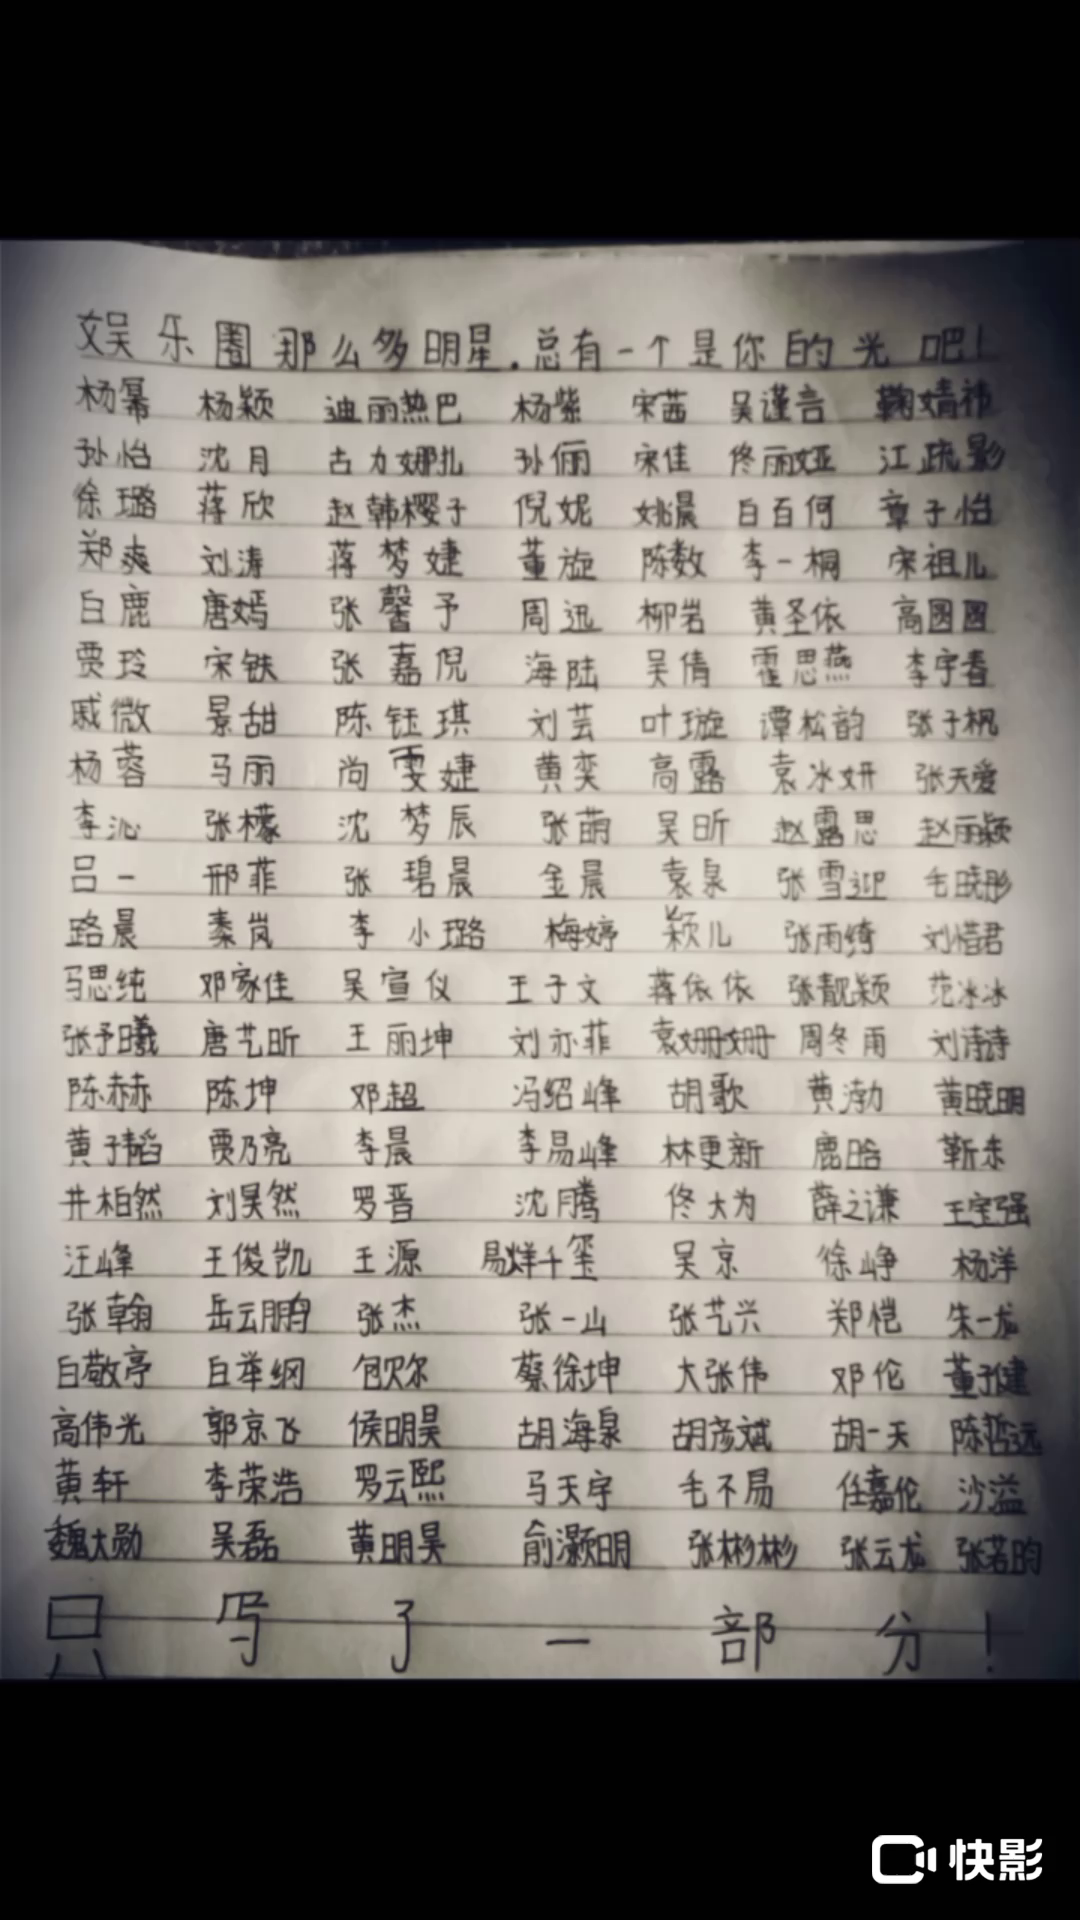 娱乐圈那么多明星.总有一个是你的光吧!
杨幂 杨颖 迪丽热巴 杨紫 宋茜 吴谨言 鞠婧祎
孙怡 沈月 古力娜扎 孙俪 宋佳 佟丽娅 江疏影
徐璐 蒋欣 赵韩樱子 倪妮 姚晨 白百何 章子怡
郑爽 刘涛 蒋梦婕 董旋 陈数 李一桐 宋祖儿
白鹿 唐嫣 张馨予 周迅 柳岩 黄圣依 高圆圆
贾玲 宋轶 张嘉倪 海陆 吴倩 霍思燕 李宇春
戚微 景甜 陈钰琪 刘芸 叶璇 谭松韵 张子枫
杨蓉 马丽 尚雯婕 黄奕 高露 袁冰妍 张天爱
李沁 张檬 沈梦辰 张萌 吴昕 赵露思 赵丽颖
吕一 邢菲 张碧晨 金晨 袁泉 张雪迎 毛晓彤
路晨 秦岚 李小璐 梅婷 颖儿 张雨绮 刘惜君
马思纯 邓家佳 吴宣仪 王子文 蒋依依 张靓颖 范冰冰
张予曦 唐艺昕 王丽坤 刘亦菲 袁姗姗 周冬雨 刘诗诗
陈赫 陈坤 邓超 冯绍峰 胡歌 黄渤 黄晓明
黄子韬 贾乃亮 李晨 李易峰 林更新 鹿晗 靳东
井柏然 刘昊然 罗晋 沈腾 佟大为 薛之谦 王宝强
汪峰 王俊凯 王源 易烊千玺 吴京 徐峥 杨洋
张翰 岳云鹏 张杰 张一山 张艺兴 郑恺 朱一龙
白敬亭 白举纲 包贝尔 蔡徐坤 大张伟 邓伦 董子健
高伟光 郭京飞 侯明昊 胡海泉 胡彦斌 胡一天 陈哲远
黄轩 李荣浩 罗云熙 马天宇 毛不易 任嘉伦 沙溢
魏大勋 吴磊 黄明昊 俞灏明 张彬彬 张云龙 张若昀
只写了一部分!
快影